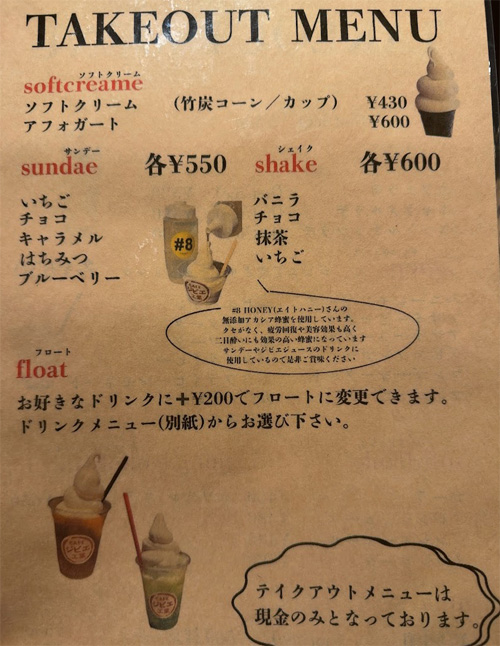 TAKEOUT MENU
ソフトクリーム
softcreame
ソフトクリーム (竹炭コーン/カップ) ¥430
アフォガート ¥600
サンデー
sundae 各¥550
いちご
チョコ
キャラメル
はちみつ
ブルーベリー
シェイク
shake 各¥600
バニラ
チョコ
抹茶
いちご
#8
#8 HONEY(エイトハニー)さんの
無添加アカシア蜂蜜を使用しています。
クセがなく、疲労回復や美容効果も高く
二日酔いにも効果の高い蜂蜜になっています
サンデーやジビエジュースのドリンクに
使用しているので是非ご賞味ください
フロート
float
お好きなドリンクに+¥200でフロートに変更できます。
ドリンクメニュー(別紙)からお選び下さい。
ジビエ
ジビエ
テイクアウトメニューは
現金のみとなっております。